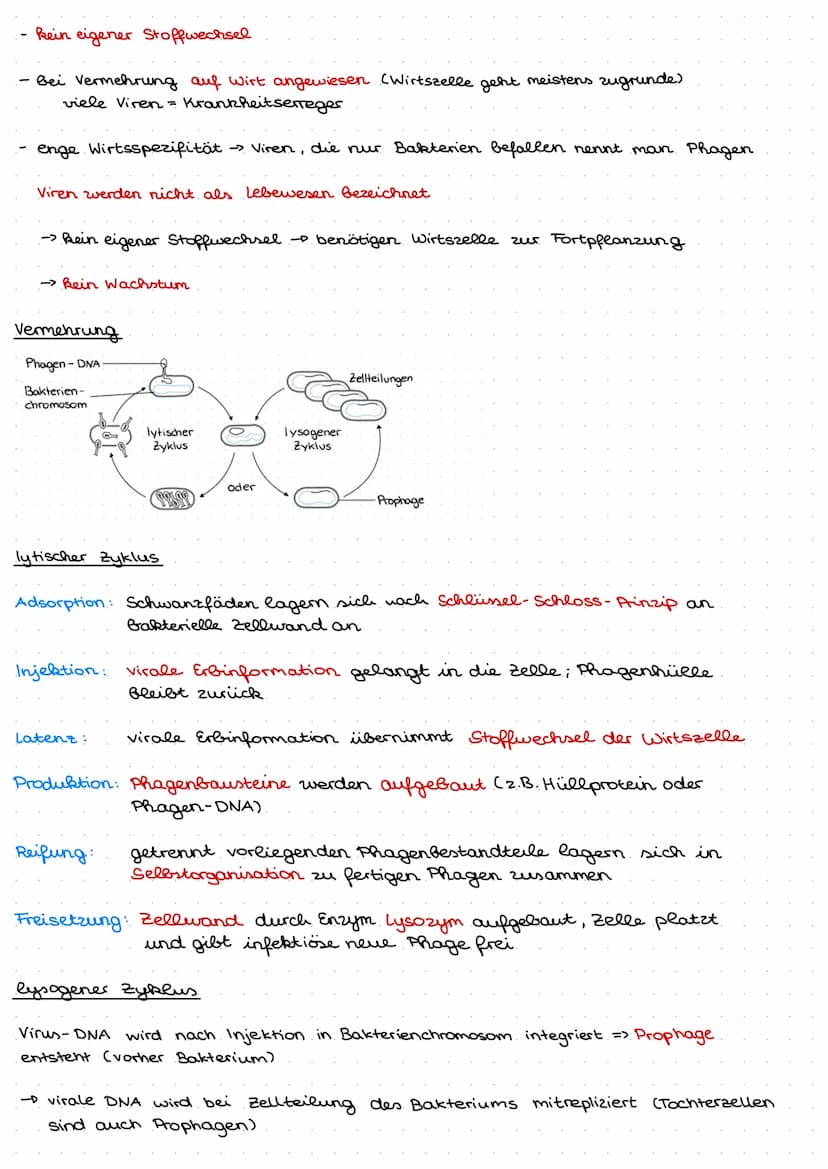 - kein eigener Stoffwechsel
- Bei Vermehrung auf Wirt angewiesen (Wirtszelle geht meistens zugrunde)
viele Viren = Krankheitserreger
- enge Wirtsspezifität → Viren, die nur Bakterien befallen nennt man Phagen
Viren werden nicht als Lebewesen bezeichnet
→ kein eigener Stoffwechsel → benötigen Wirtszelle zur Fortpflanzung
→ kein Wachstum
Vermehrung
Phagen-DNA
Bakterien-
chromosom
lytischer
Zyklus
oder
lysogener
Zyklus
Zellteilungen
Prophage
lytischer Zyklus
Adsorption: Schwanzfäden lagern sich nach Schlüssel-Schloss-Prinzip an
bakterielle Zellwand an
Injektion: virale Erbinformation gelangt in die Zelle; Phagenhülle
bleibt zurück
Latenz: virale Erbinformation übernimmt Stoffwechsel der Wirtszelle
Produktion: Phagenbausteine werden aufgebaut (z.B. Hüllprotein oder
Phagen-DNA)
Reifung: getrennt vorliegenden Phagenbestandteile lagern sich in
Selbstorganisation zu fertigen Phagen zusammen
Freisetzung: Zellwand durch Enzym Lysozym aufgebaut, Zelle platzt
und gibt infektiöse neue Phage frei
lysogener Zyklus
Virus-DNA wird nach Injektion in Bakterienchromosom integriert => Prophage
entsteht (vorher Bakterium)
→ virale DNA wird bei Zellteilung des Bakteriums mitrepliziert (Tochterzellen
sind auch Prophagen)